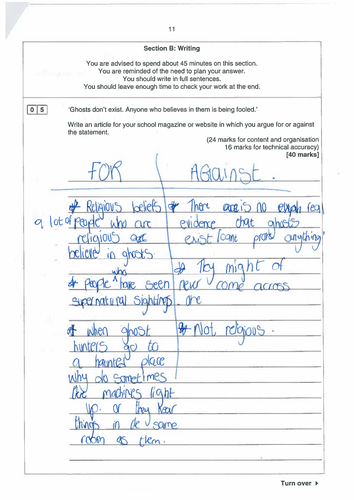 11
Section B: Writing
You are advised to spend about 45 minutes on this section.
You are reminded of the need to plan your answer.
You should write in full sentences.
You should leave enough time to check your work at the end.
0 5
'Ghosts don't exist. Anyone who believes in them is being fooled.'
Write an article for your school magazine or website in which you argue for or against
the statement.
(24 marks for content and organisation
16 marks for technical accuracy)
[40 marks]
FOR
Religious beliefs
a lot of people who are
religious are
believe in ghosts.
people who have seen
supernatural sightings.
when ghost
hunters go to
a haunted place
why do sometimes
machines light
up. or they hear
things in the same
room as them.
Against.
There is no real
evidence that ghosts
exist/cant prove anything
They might of
never come across
one
Not religious.
Turn over